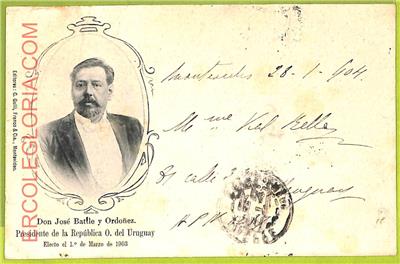 ERCOLEGLORIA.COM
Editores: C. Galli, Franco & Cia., Montevideo.
Don José Batlle y Ordoñez.
Presidente de la República O. del Uruguay
Electo el 1.º de Marzo de 1903
Montevideo 28-1-904
Mme
calle
Uruguay